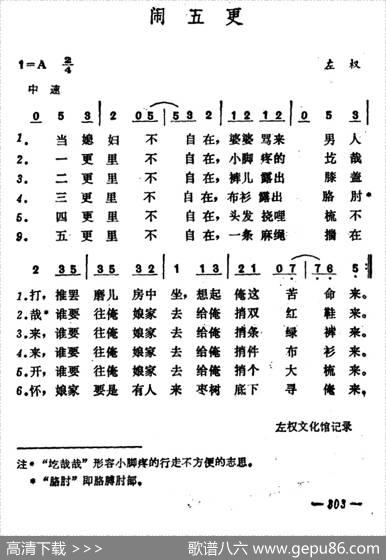 闹五更
1=A 2/4 左权
中速
0 5 3 2 05 53 2 12 12 0 5 3
1。当媳妇不自在，婆婆骂来男人
2。一更里不自在，小脚疼的圪哉
3。二更里不自在，裤儿露出膝盖
4。三更里不自在，布衫露出胳肘*
5。四更里不自在，头发挠哩梳不
9。五更里不自在，一条麻绳搐在
2 35 35 35 32 1 13 21 07 76 5
1.打，推罢磨儿房中坐，想起俺这苦命来。
2.哉*谁要往俺娘家去给俺捎双红鞋来。
3.来，谁要往俺娘家去给俺捎条绿裤来。
4.来，谁要往俺娘家去给俺捎件布衫来。
5.开，谁要往俺娘家去给俺捎个大梳来。
6.怀，娘家要是有人来枣树底下寻俺来。
左权文化馆记录
注*“圪哉哉”形容小脚疼的行走不方便的志思。
*“胳肘”即胳膊肘部。
— 303 —
高清下载 >>> 歌谱八六 www.gepu86.com